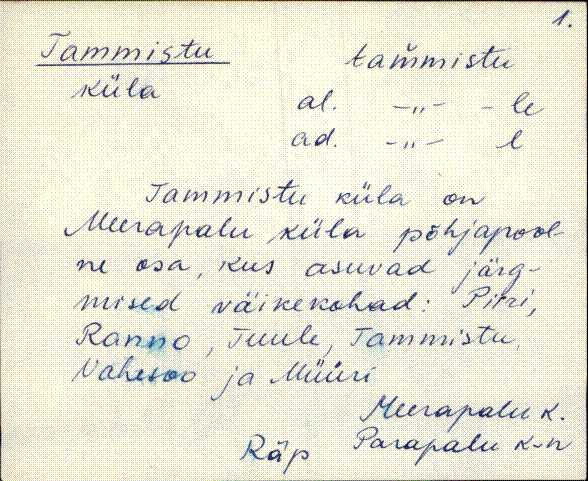 1.
Tammistu tam̆mistu
küla
al. -„- - le
ad. -„- l
Tammistu küla on
Meerapalu küla põhjapool-
ne osa, kus asuvad järg-
mised väikekohad: Piiri,
Ranno, Tuule, Tammistu,
Vahesoo ja Müüri
Meerapalu k.
Räp Parapalu k-n